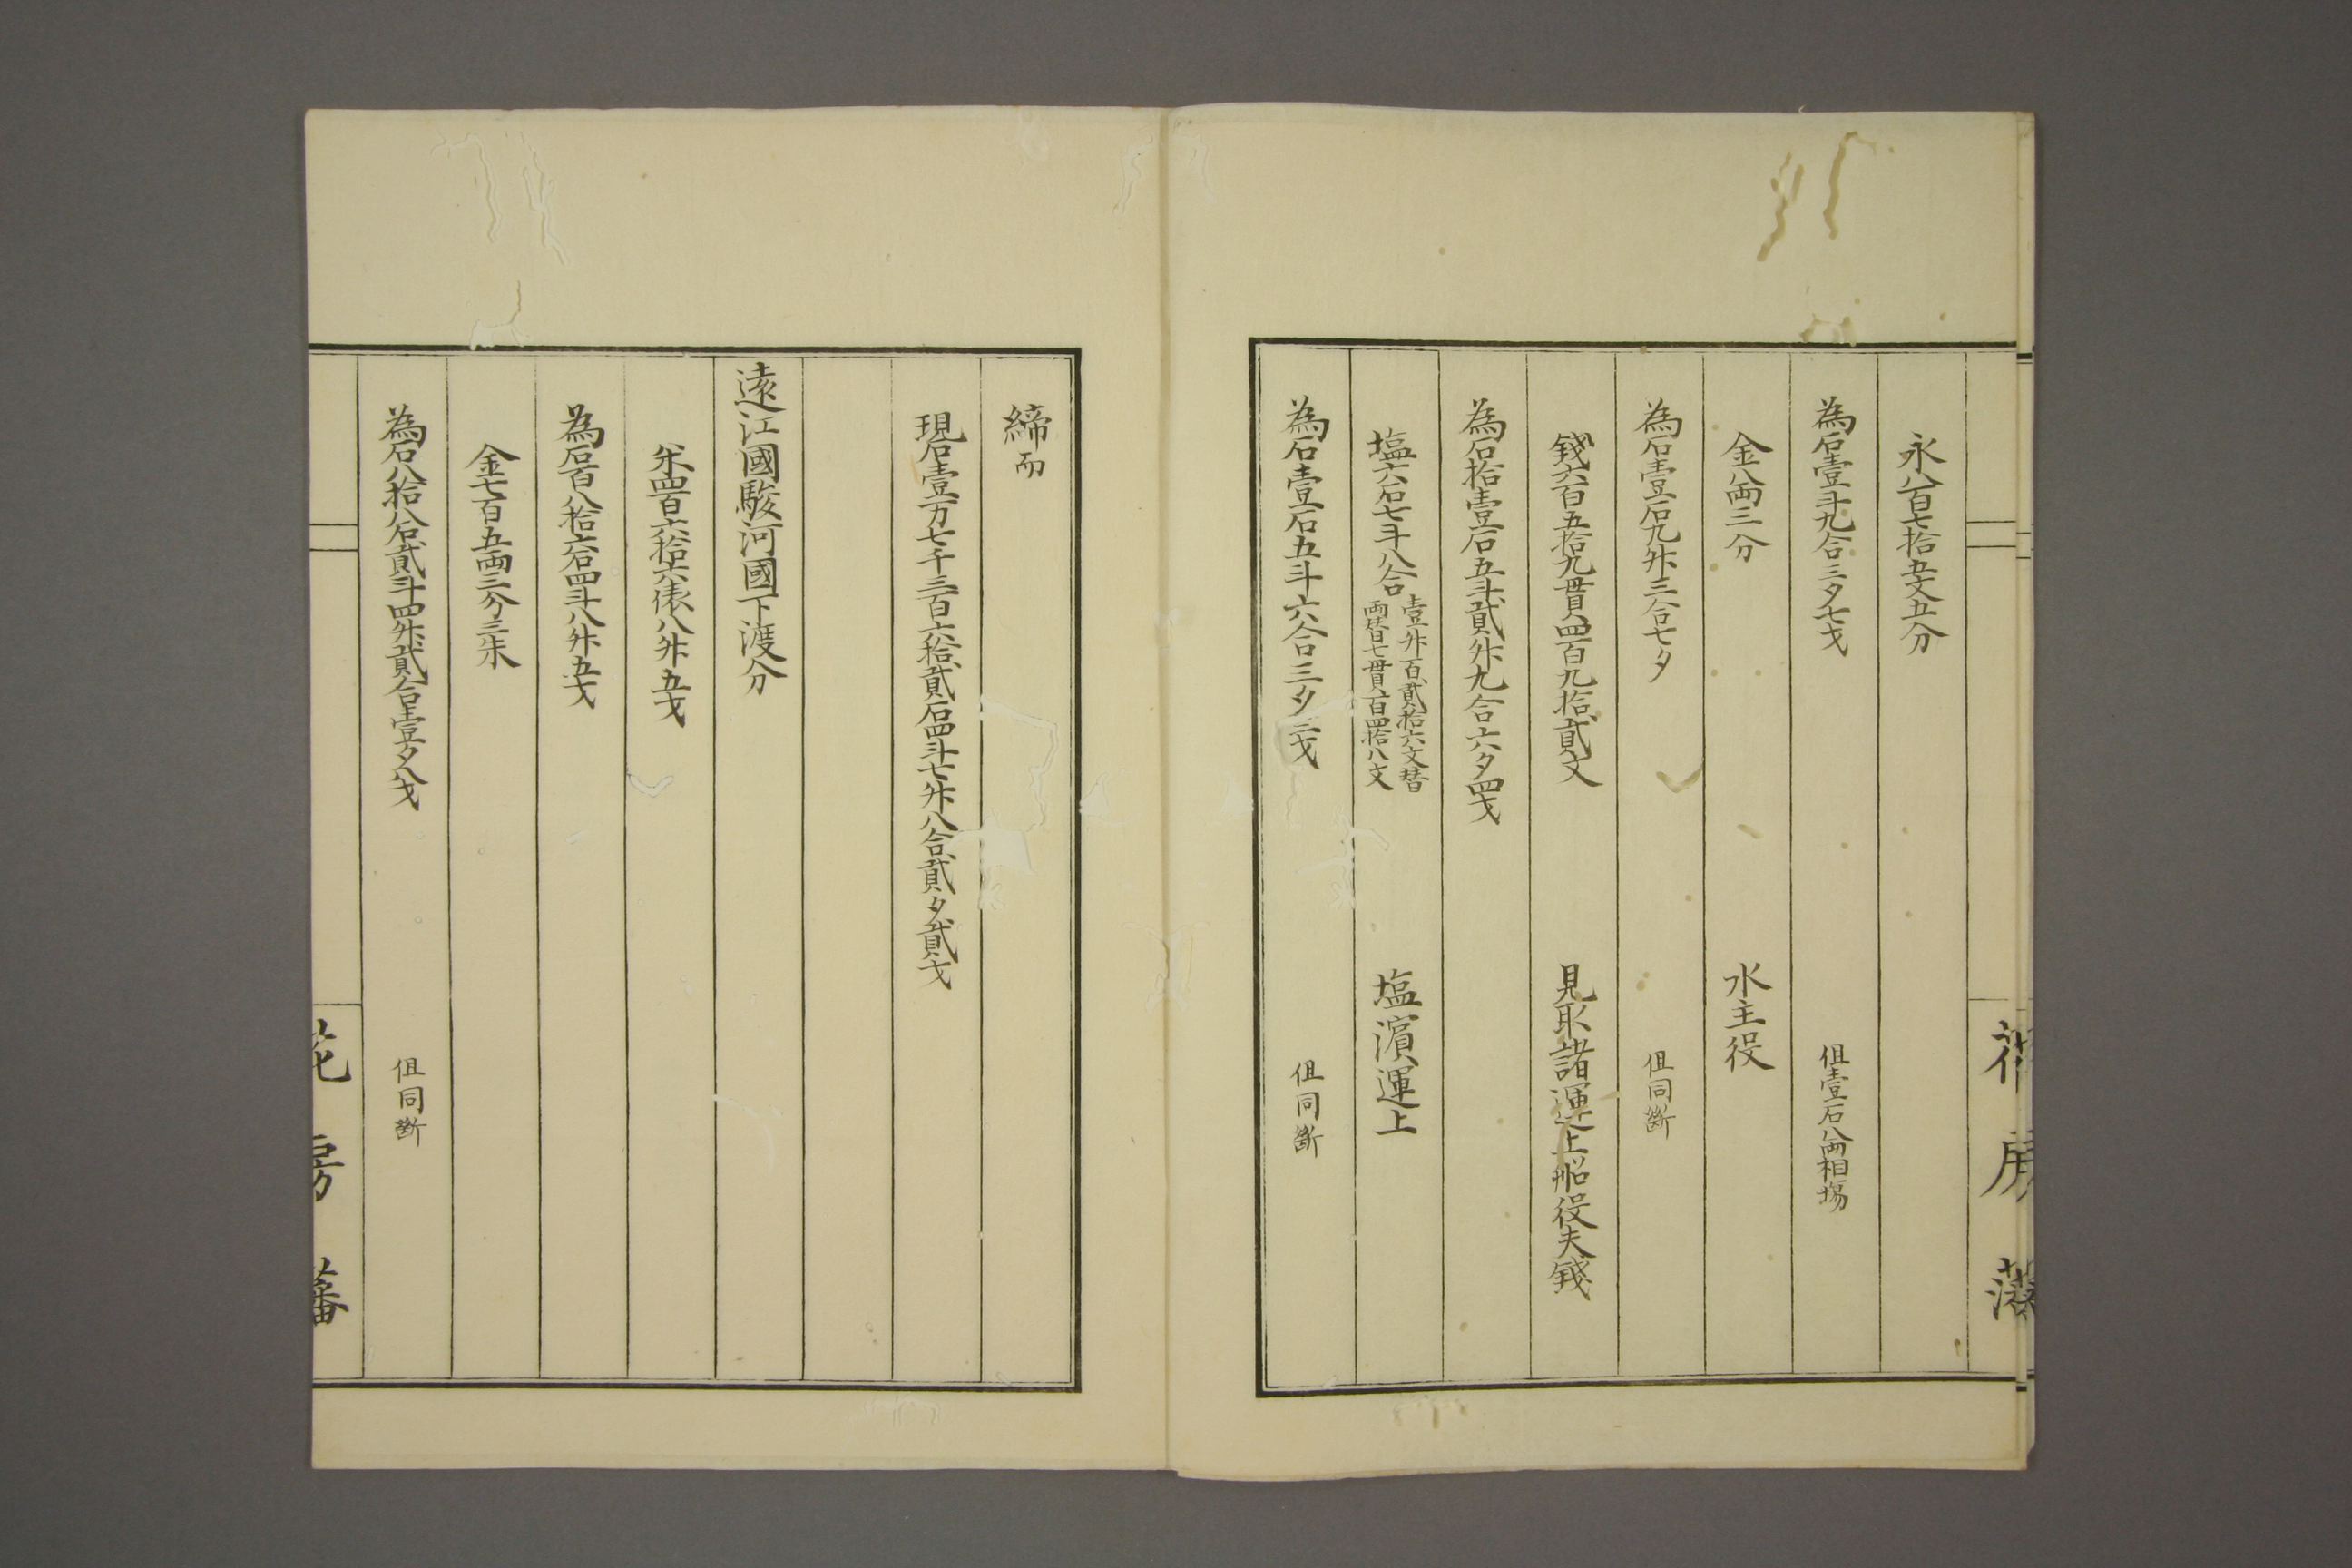 永八百七拾五文五分
為石壹斗九合三夕七才
但壹石八両相場
金八両三分
水主役
為石壹石九升三合七夕
但同断
錢六百五拾九貫四百九拾貳文
見取諸運上船役夫錢
為石拾壹石五斗貳升九合六夕四才
塩六石七斗八合
壹升百貳拾六文替
両替七貫百四拾八文
塩濱運上
為石壹石五斗六合三夕三才
但同断
花房藩
締而
現石壹万七千三百六拾貳石四斗七升八合貳夕貳才
遠江國駿河國下渡分
米四百六拾六俵八升五才
為石百八拾六石四斗八升五才
金七百五両三分三朱
為石八拾八石貳斗四升貳合壹夕八才
但同断
花房藩